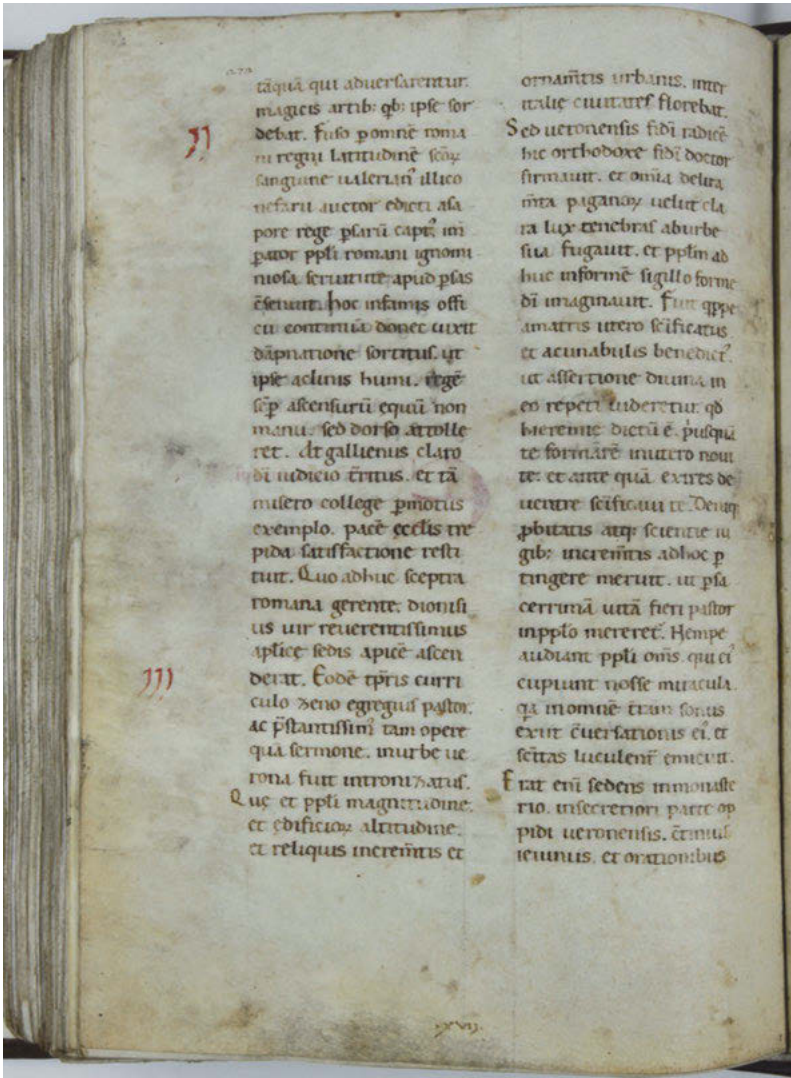 tāquā qui adversarentur.
magicis artib; qb; ipse sor
II
debat. Fuso p omnē roma
ni regni latitudinē scōꝝ
sanguine ualerian᷒ illico
nefarii auctor edicti asa
pore rege psarū capt᷒. im
pator ppli romani ignomi
niosa seruitute apud psas
c̄senuit. hoc infamis offi
cii continuā donec uixit
dāpnatione sortitus. ut
ipse acliuis humi. regē
sēp ascensurū equū non
manu. sed dorso attolle
ret. At gallienus claro
dī iudicio t̄ritus. et tā
misero college pmotus
exemplo. pacē ecclis tre
pida satisfactione resti
tuit. Quo adhuc sceptra
romana gerente. dionisi
us uir reuerentissimus
aplice sedis apicē ascen
III
derat. Eodē tp̄ris curri
culo zeno egregius pastor.
ac p̄stantissim᷒ tam opere
quā sermone. inurbe ue
rona fuit intronizatus.
Quę et ppli magnitudine.
et ędificioꝝ altitudine.
et reliquis increm̄tis et
ornam̄tis urbanis. inter
italie ciuitates florebat.
Sed ueronensis fidī radicē
hic orthodoxe fidī doctor
firmauit. et om̄ia delira
m̄ta paganoꝝ uelut cla
ra lux tenebras aburbe
sua fugauit. et pplm ad
huc informē sigillo forme
dī imaginauit. Fuit qppe
amatris utero scīficatus
et acunabulis benedict᷒.
ut assertione diuina in
eo repeti uideretur. qd
hieremie dictū ē. p̍usquā
te formarē inutero noui
te. et ante quā exires de
uentre scīficaui te. Deniq;
ꝓbitatis atq; scientie iu
gib; increm̄tis adhoc p
tingere meruit. ut psa
cerrimā uitā fieri pastor
inpplo mereret᷒. Nempe
audiant ppli om̄s. qui ei᷒
cupiunt nosse miracula.
qa inomnē t̄ram sonus
exiuit c̄uersationis ei᷒. et
scītas luculent̄ emicuit.
Erat eni sedens inmonaste
rio. insecretiori parte op
pidi ueronensis. c̄tinuis
ieiuniis. et orationibus
XVII